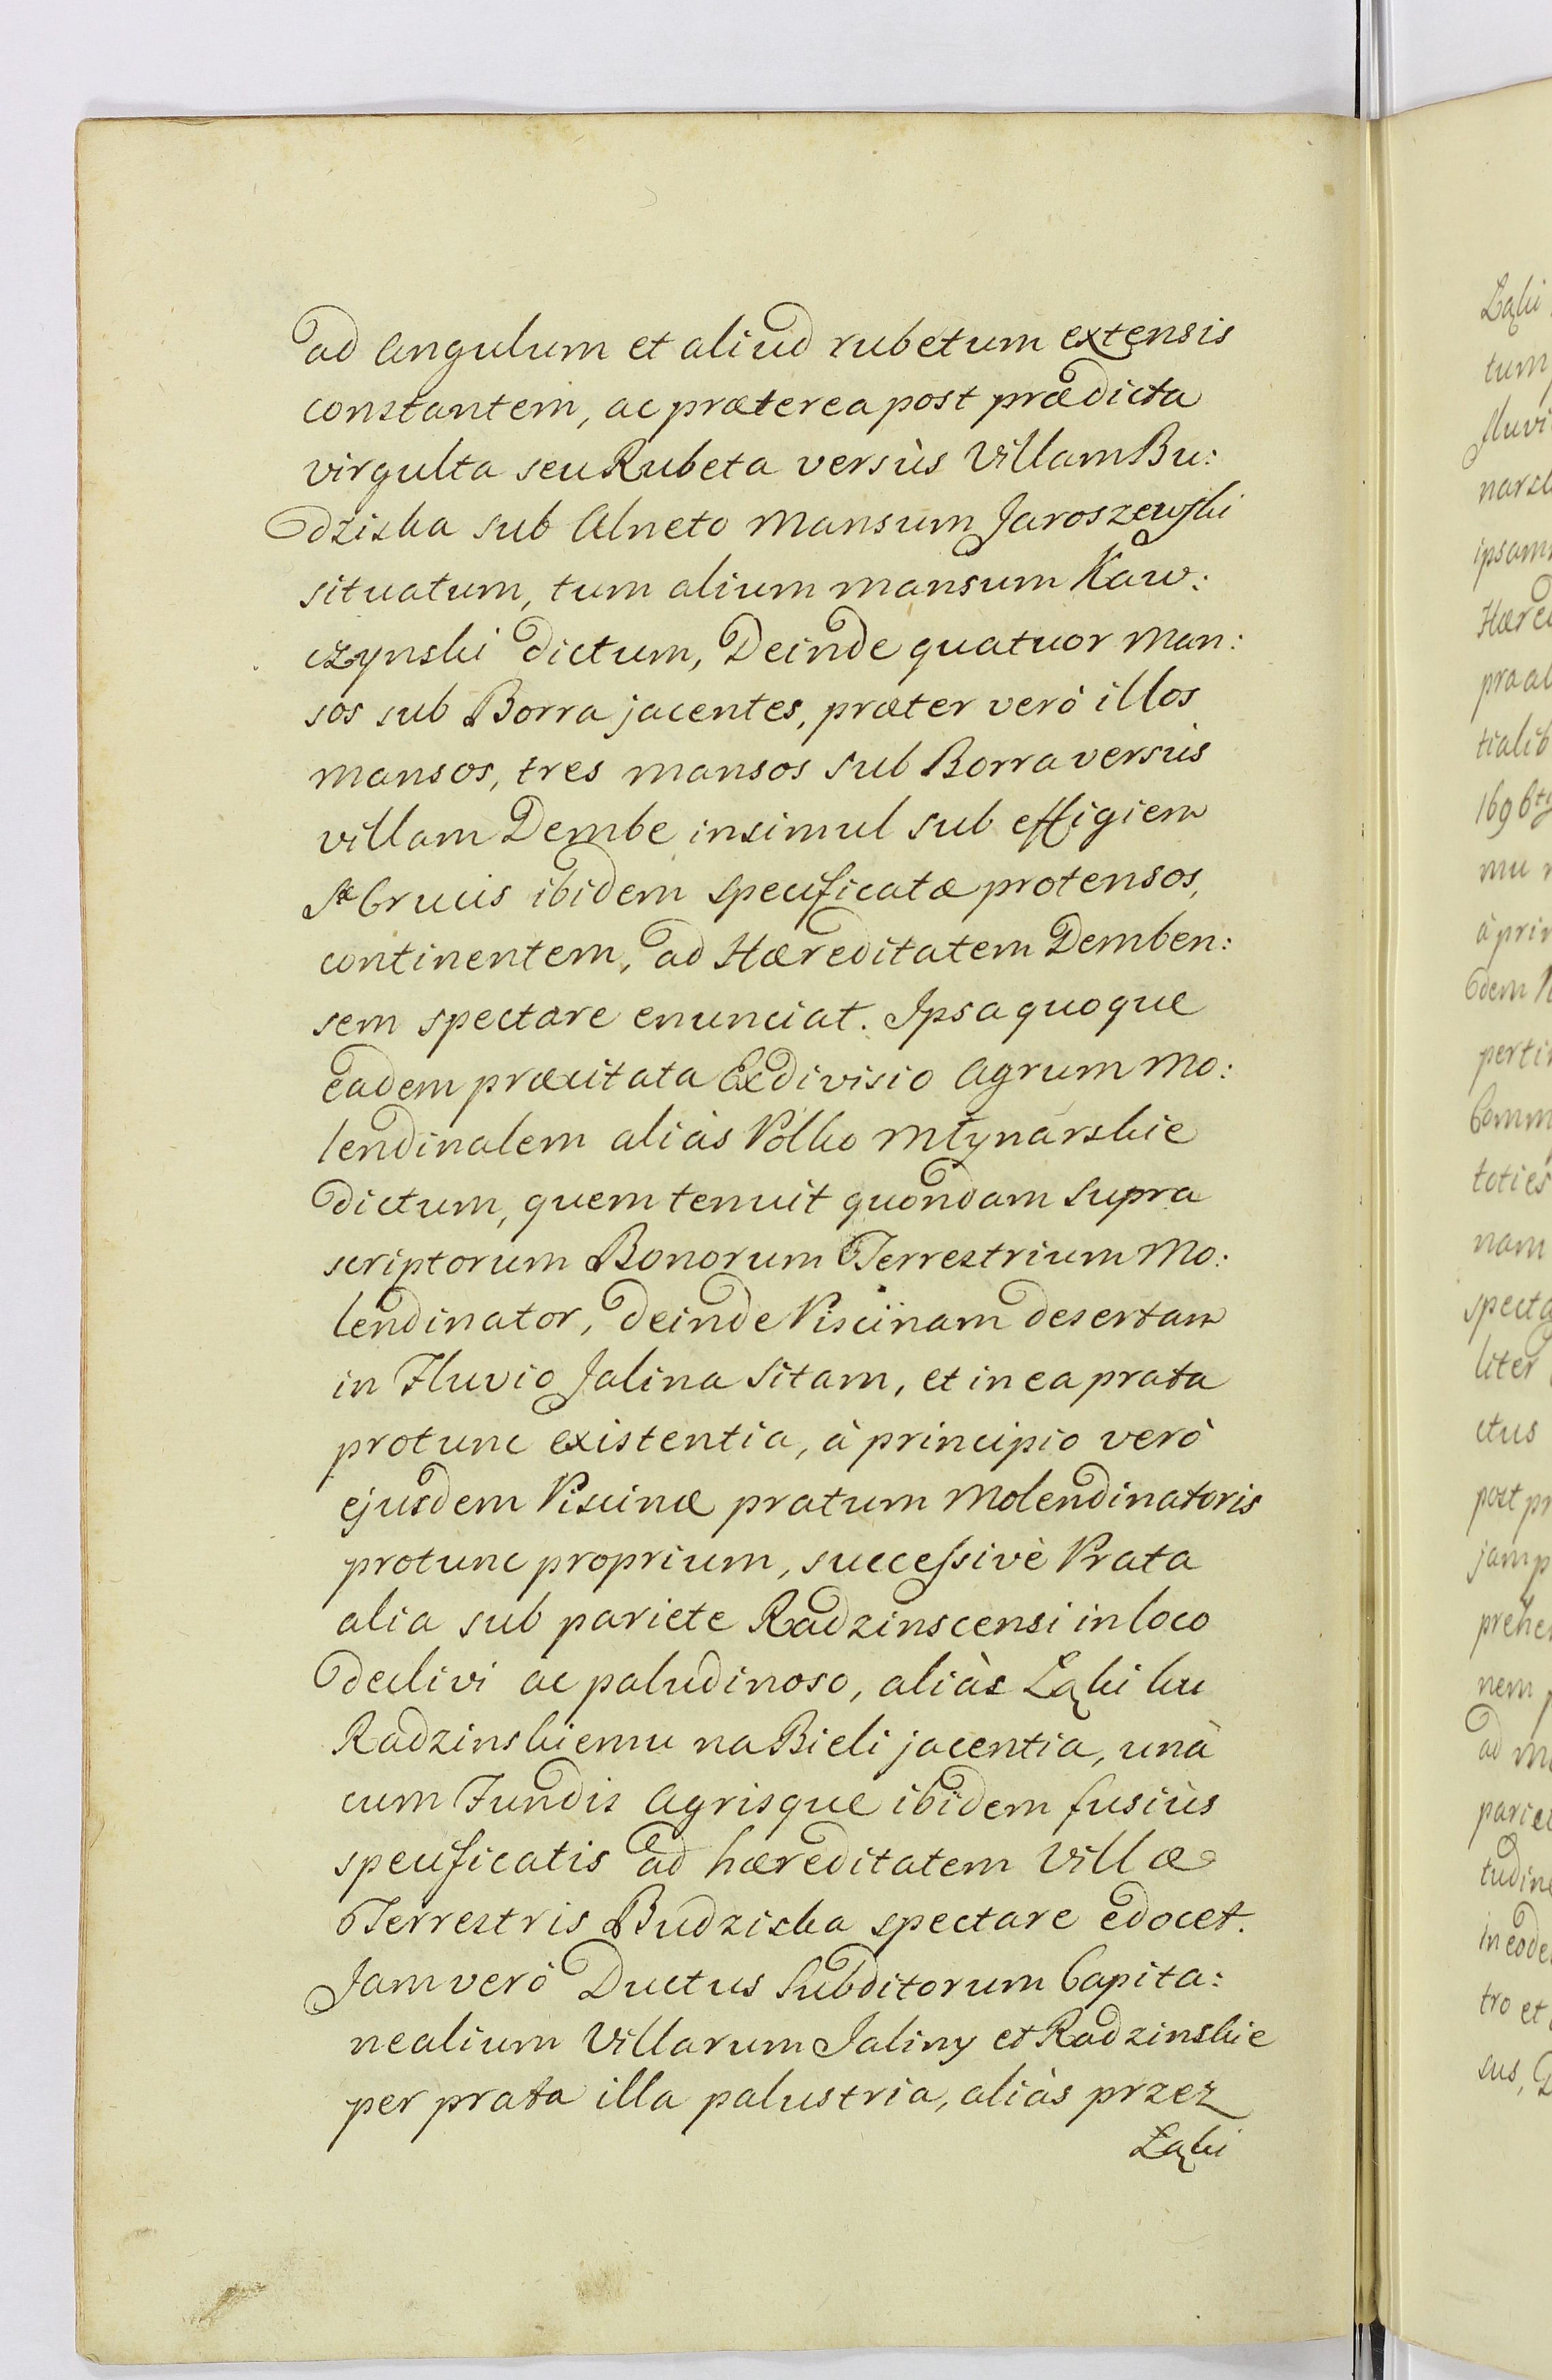 ad Angulum et aliud rubetum extensis
constantem, ac præterea post prædicta
virgulta seu Rubeta versùs Villam Bu:
dziska sub Alneto Mansum Jaroszewski
situatum, tum alium mansum Kaw:
czynski dictum, Deinde quatuor Man:
sos sub Borra jacentes, præter verò illos
Mansos, tres mansos sub Borra versùs
villam Dembe insimul sub effigiem
Stæ Crucis ibidem specificatæ protensos,
continentem, ad Hæreditatem Demben:
sem spectare enunciat. Ipsa quoque
eadem præcitata Exdivisio Agrum Mo:
lendinalem aliàs Polko Młynarskie
dictum, quem tenuit quondam Supra
scriptorum Bonorum Terrestrium Mo:
lendinator, deinde Piscinam desertam
in Fluvio Jalina Sitam, et in ea prata
protunc existentia, à principio verò
ejusdem Piscinæ pratum Molendinatoris
protunc proprium, successivè Prata
alia sub pariete Radzinscensi in loco
declivi ac paludinoso, aliàs Łąki ku
Radzinskiemu na Bieli jacentia, unà
cum Fundis Agrisque ibidem fusiùs
specificatis ad hæreditatem Villæ
Terrestris Budziska spectare edocet.
Jam verò Ductus Subditorum Capita:
nealium Villarum Jaliny et Radzinskie
per prata illa palustria, aliàs przez
Łąki
Łąki
tum
fluvi
narsk
ipsam
Hæred
pra al
tialib
1696to
mu
à prin
dem
perti
Comm
toties
nam
specta
liter
ctus
post pr
jam p
prehe
nem
ad m
pariet
tudin
in eode
tro et
sus,